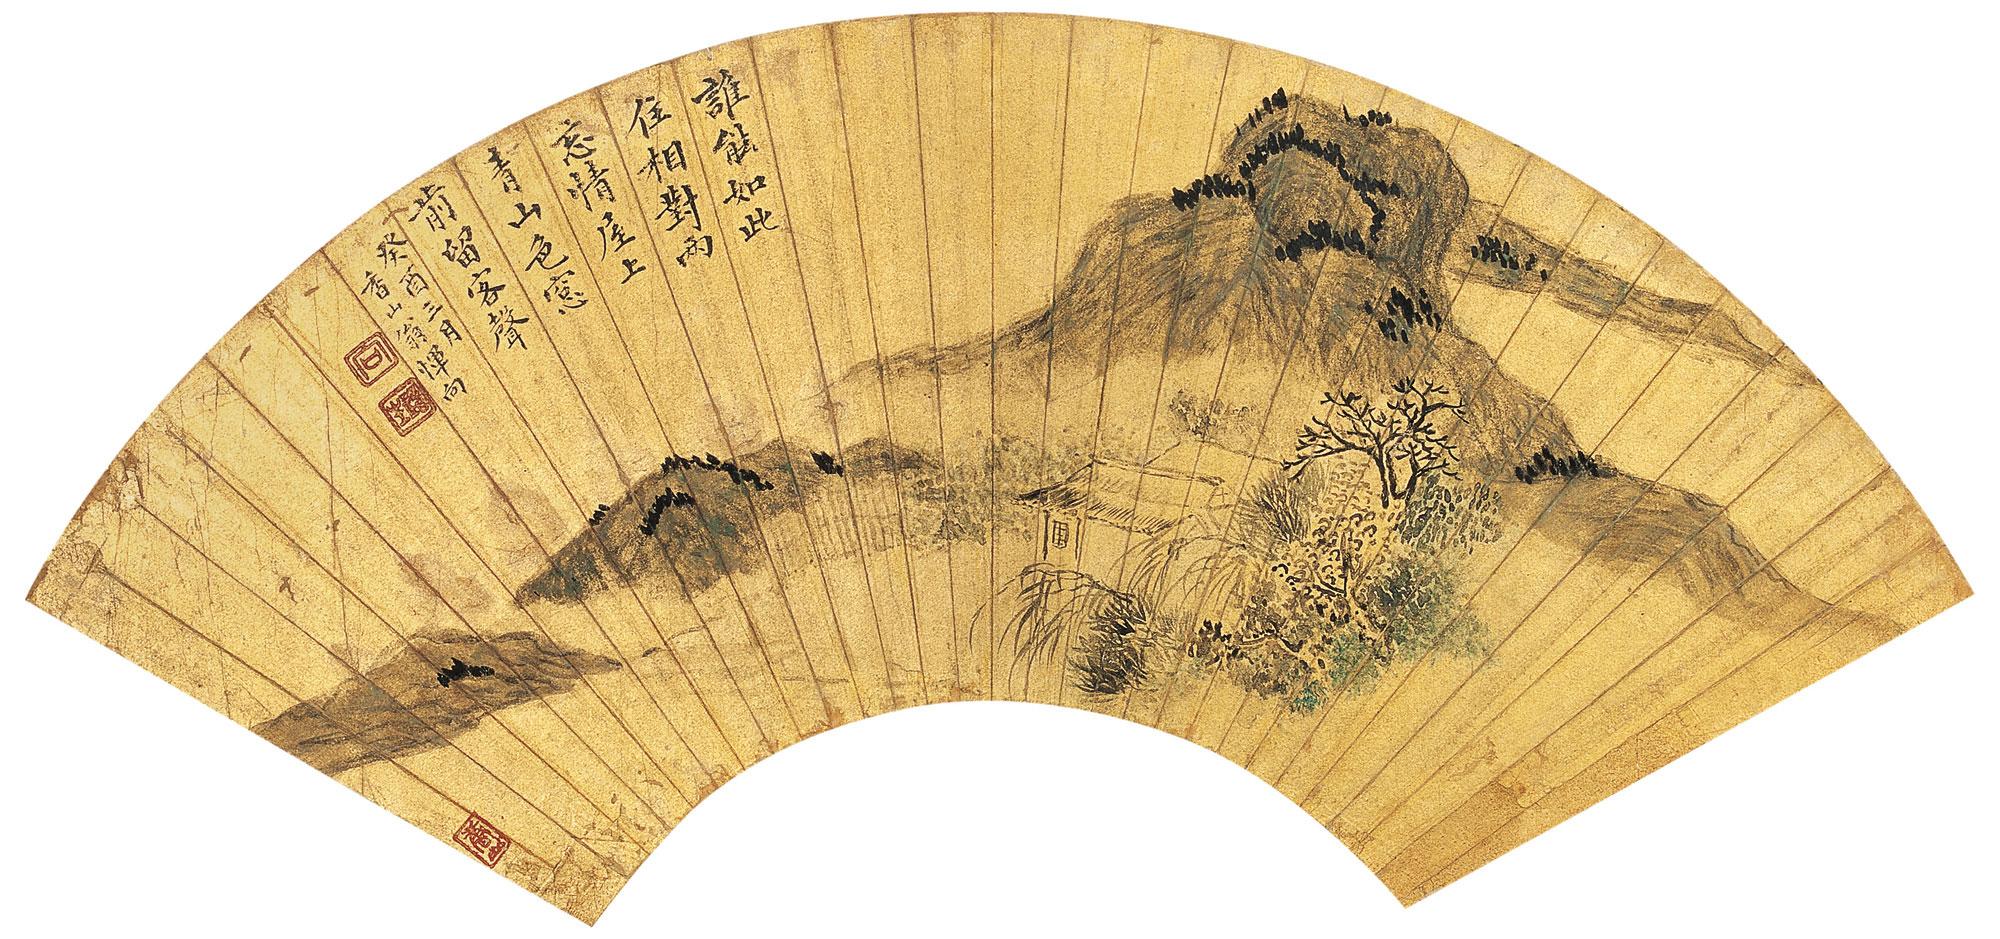 誰能如此
住相對兩
忘情屋上
青山色窓
前留客聲
癸酉三月惲向
香山翁